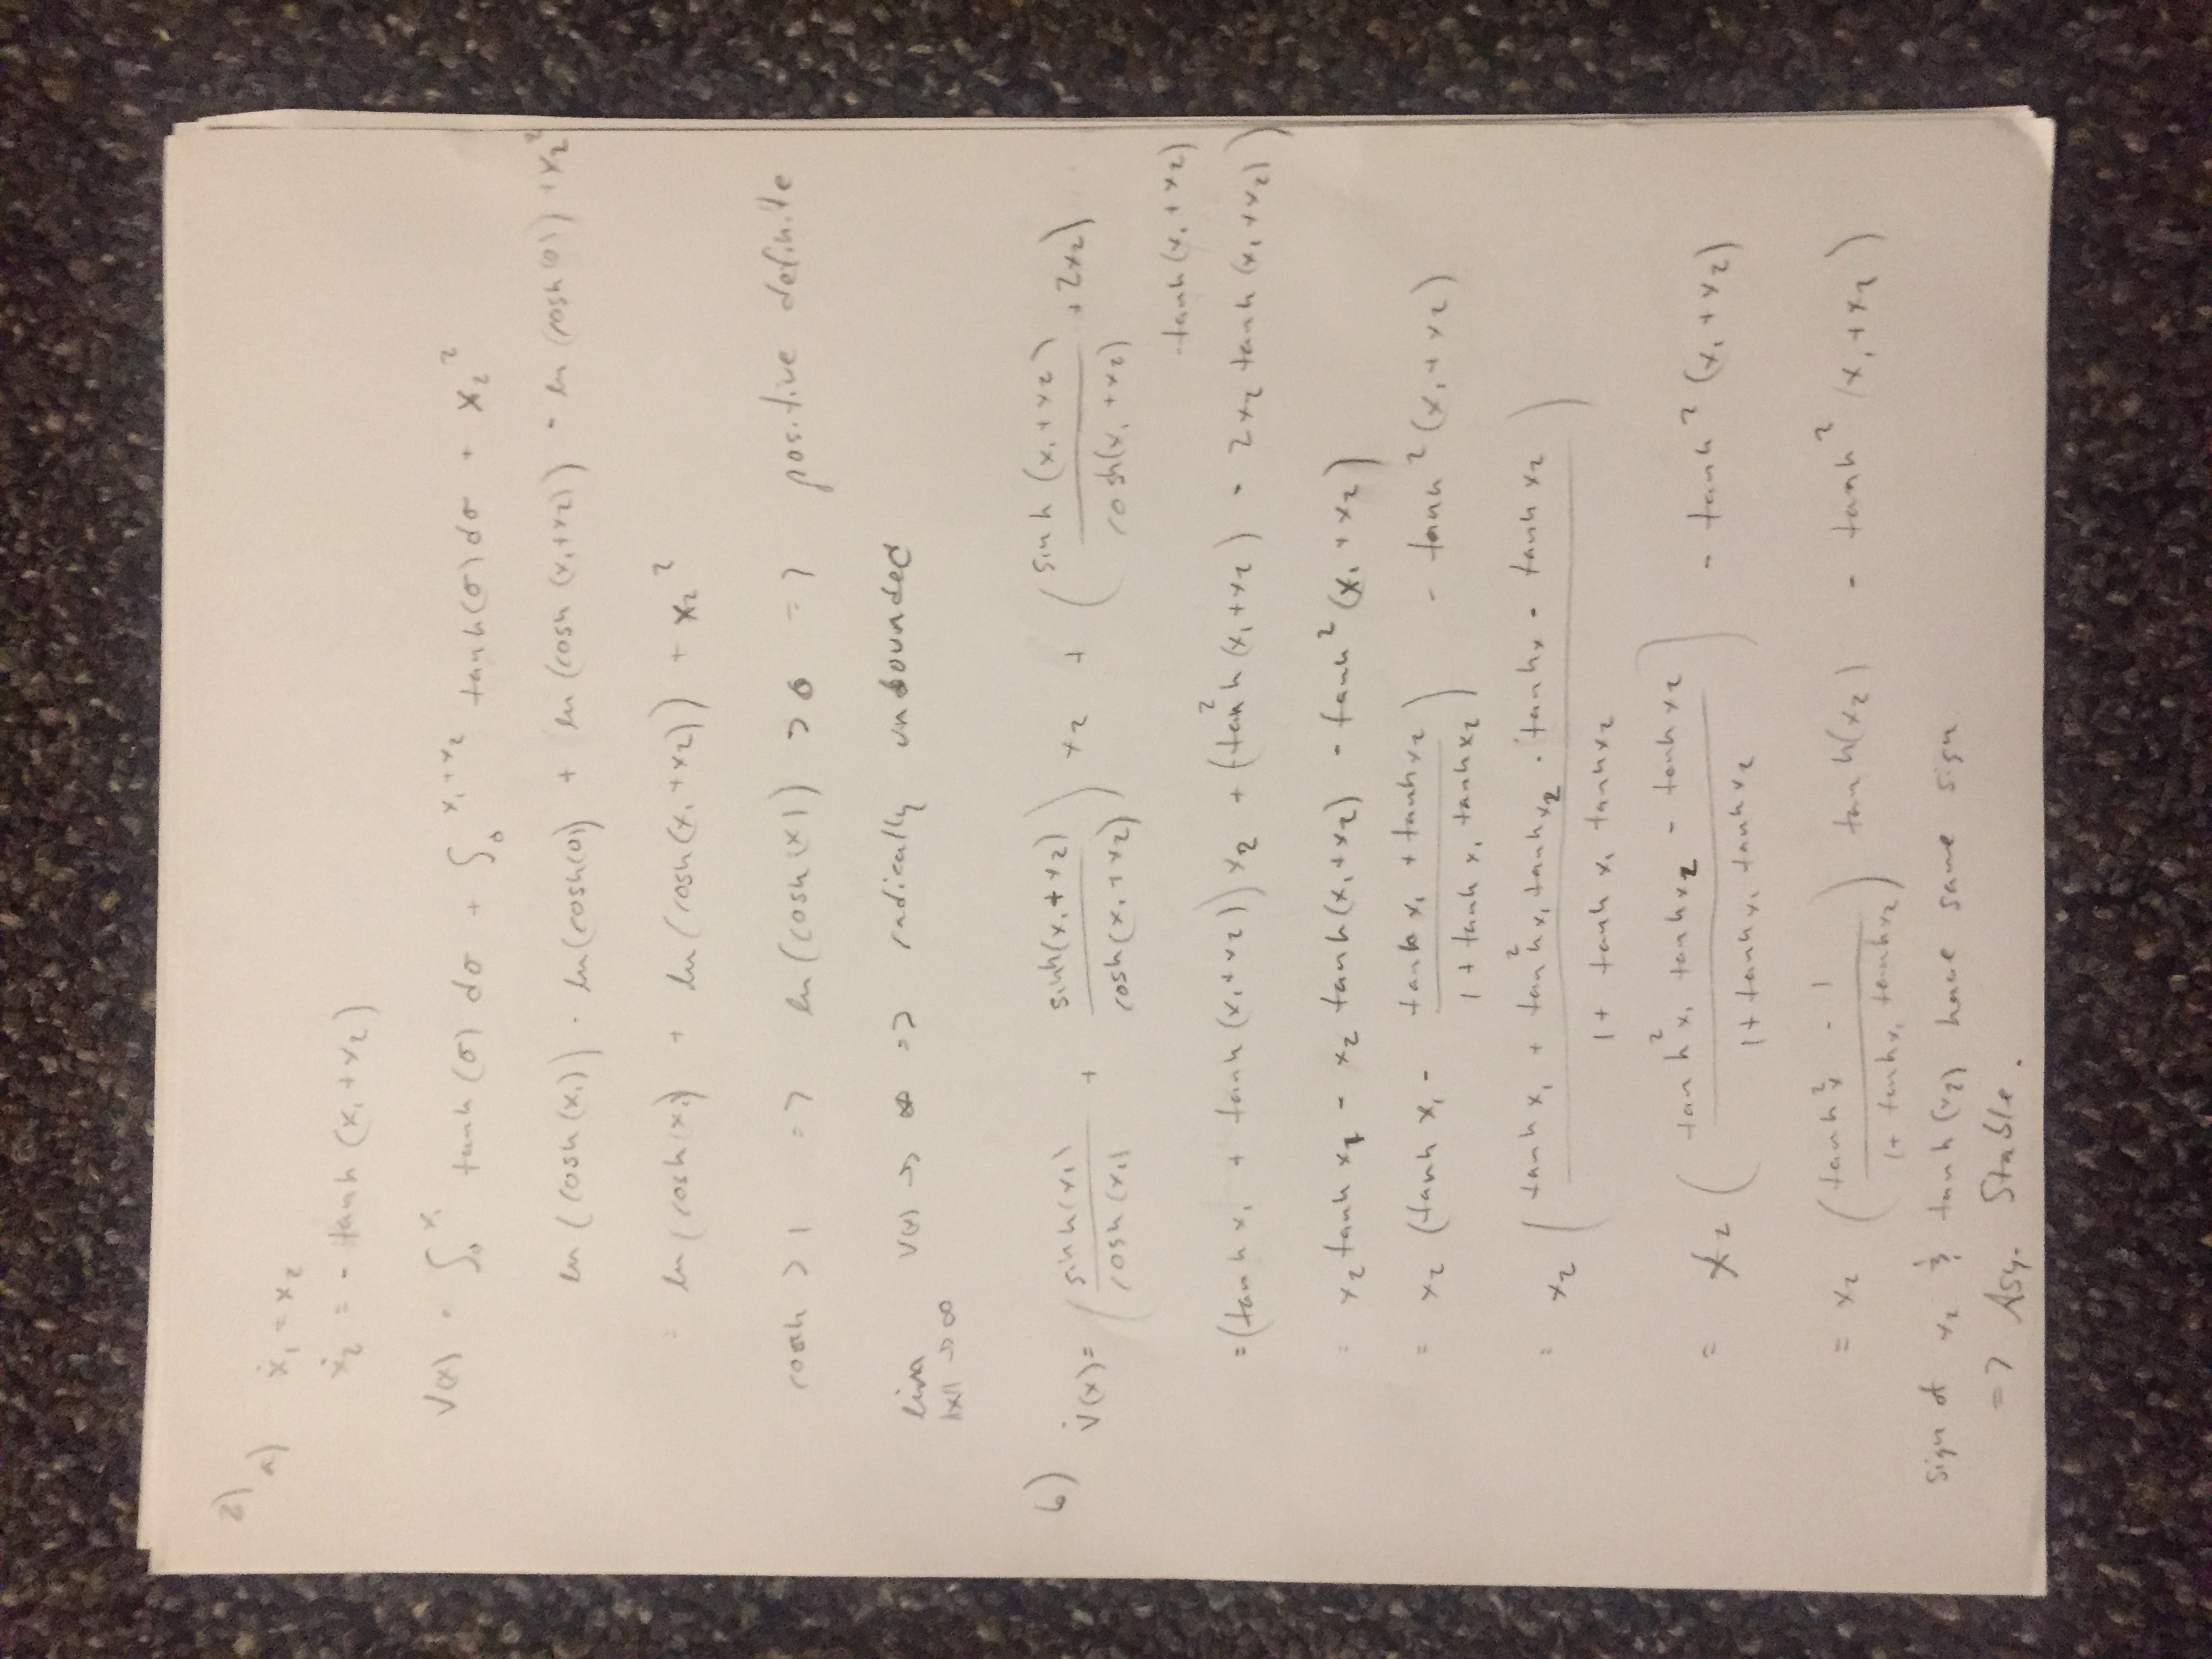 2)
a) ẋ₁ = x₂
ẋ₂ = - tanh (x₁ + x₂)
V(x) = ∫₀^x₁ tanh (σ) dσ + ∫₀^x₁+x₂ tanh(σ) dσ + x₂²
ln (cosh (x₁)) - ln(cosh(0)) + ln (cosh (x₁+x₂)) - ln (cosh(0)) + x₂²
= ln (cosh(x₁)) + ln (cosh(x₁+x₂)) + x₂²
cosh > 1 => ln (cosh(x)) > 0 => positive definite
lim V(x) → ∞ => radically unbounded
||x|| → ∞
b) V̇(x) = (sinh(x₁)/cosh(x₁) + sinh(x₁+x₂)/cosh(x₁+x₂)) x₂ + (sinh (x₁+x₂)/cosh(x₁+x₂) + 2x₂)
-tanh(x₁+x₂)
= (tanh x₁ + tanh (x₁+x₂)) x₂ + (-tan²h (x₁+x₂) - 2x₂ tanh (x₁+x₂))
= x₂ tanh x₁ - x₂ tanh(x₁+x₂) - tanh² (x₁+x₂)
= x₂ (tanh x₁ - (tanh x₁ + tanh x₂)/(1 + tanh x₁ tanh x₂)) - tanh² (x₁+x₂)
= x₂ ((tanh x₁ + tan²h x₁ tanh x₂ - tanh x - tanh x₂)/(1 + tanh x₁ tanh x₂))
= x₂ ((tanh² x₁ tanh x₂ - tanh x₂)/(1 + tanh x₁ tanh x₂)) - tanh² (x₁+x₂)
= x₂ ((tanh² x - 1)/(1 + tanh x₁ tanh x₂)) tanh(x₂) - tanh² (x₁+x₂)
sign of x₂ & tanh (x₂) have same sign
=> Asy. Stable.